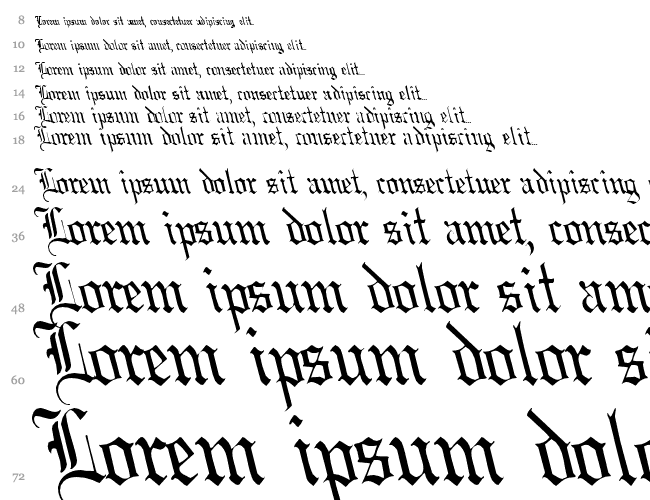 8 Lorem ipsum dolor sit amet, consectetuer adipiscing elit...
10 Lorem ipsum dolor sit amet, consectetuer adipiscing elit...
12 Lorem ipsum dolor sit amet, consectetuer adipiscing elit...
14 Lorem ipsum dolor sit amet, consectetuer adipiscing elit...
16 Lorem ipsum dolor sit amet, consectetuer adipiscing elit...
18 Lorem ipsum dolor sit amet, consectetuer adipiscing elit...
24 Lorem ipsum dolor sit amet, consectetuer adipiscing
36 Lorem ipsum dolor sit amet, consec
48 Lorem ipsum dolor sit am
60 Lorem ipsum dolor si
72 Lorem ipsum dolo